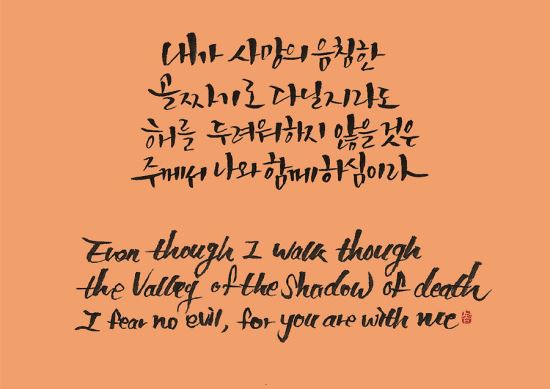 내가 사망의 음침한
골짜기로 다닐지라도
해를 두려워하지 않을것은
주께서 나와 함께하심이라
Even though I walk though
the Valley of the Shadow of death
I fear no evil, for you are with me